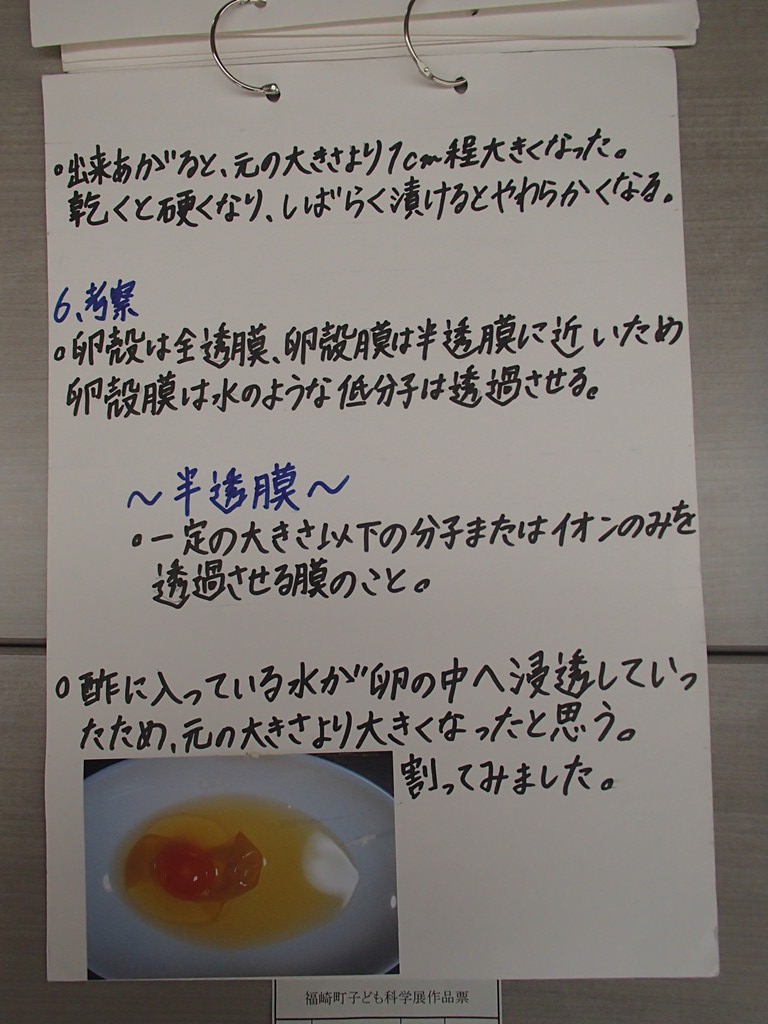 ・出来あがると、元の大きさより1cm程大きくなった。
乾くと硬くなり、しばらく漬けるとやわらかくなる。
6、考察
・卵殻は全透膜、卵殻膜は半透膜に近いため
卵殻膜は水のような低分子は透過させる。
〜半透膜〜
・一定の大きさ以下の分子またはイオンのみを
透過させる膜のこと。
○酢に入っている水が卵の中へ浸透していっ
たため、元の大きさより大きくなったと思う。
割ってみました。
福崎町子ども科学展作品票